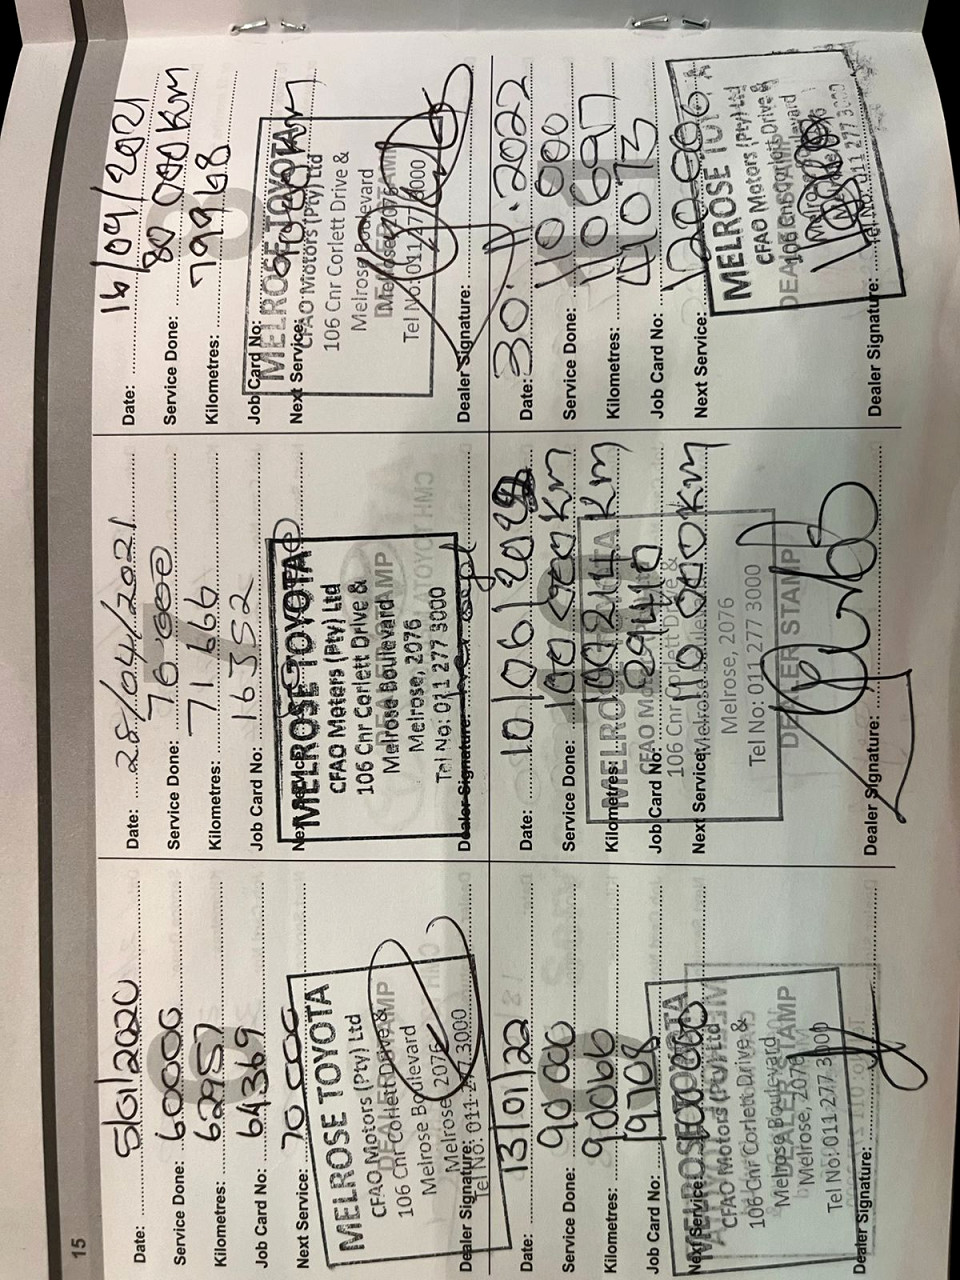 15
Date: 5/01/2020
Service Done: 60000
Kilometres: 62957
Job Card No: 64369
Next Service: 70 000
MELROSE TOYOTA
CFAO Motors (Pty) Ltd
106 Cnr Corlett Drive &
Melrose Boulevard
Melrose 2076
Tel No: 011 277 3000
DEALER STAMP
Dealer Signature:
Date: 28/04/2021
Service Done: 76 000
Kilometres: 71666
Job Card No: 16352
MELROSE TOYOTA
CFAO Motors (Pty) Ltd
106 Cnr Corlett Drive &
Melrose Boulevard
Melrose, 2076
Tel No: 011 277 3000
Dealer Signature:
Date: 16/09/2021
Service Done: 80 000 Km
Kilometres: 79948
Job Card No:
Next Service:
MELROSE TOYOTA
CFAO Motors (Pty) Ltd
106 Cnr Corlett Drive &
Melrose Boulevard
Melrose 2076
Tel No: 011 277 3000
Dealer Signature:
Date: 13/01/22
Service Done: 90 000
Kilometres: 90066
Job Card No: 19708
Next Service: 100000
MELROSE TOYOTA
CFAO Motors (Pty) Ltd
106 Cnr Corlett Drive &
Melrose Boulevard
Melrose, 2076
Tel No: 011 277 3000
DEALER STAMP
Dealer Signature:
Date: 10/06/2022
Service Done: 100 000 Km
Kilometres: 100211 Km
Job Card No: 29440
Next Service: 110 000 Km
MELROSE TOYOTA
CFAO Motors (Pty) Ltd
106 Cnr Corlett Drive &
Melrose Boulevard
Melrose, 2076
Tel No: 011 277 3000
DEALER STAMP
Dealer Signature:
Date: 30.11.2022
Service Done: 110 000
Kilometres: 110697
Job Card No: 44073
Next Service: 120 000
MELROSE TOYOTA
CFAO Motors (Pty) Ltd
106 Cnr Corlett Drive &
Melrose Boulevard
Tel No: 011 277 3000
Dealer Signature: